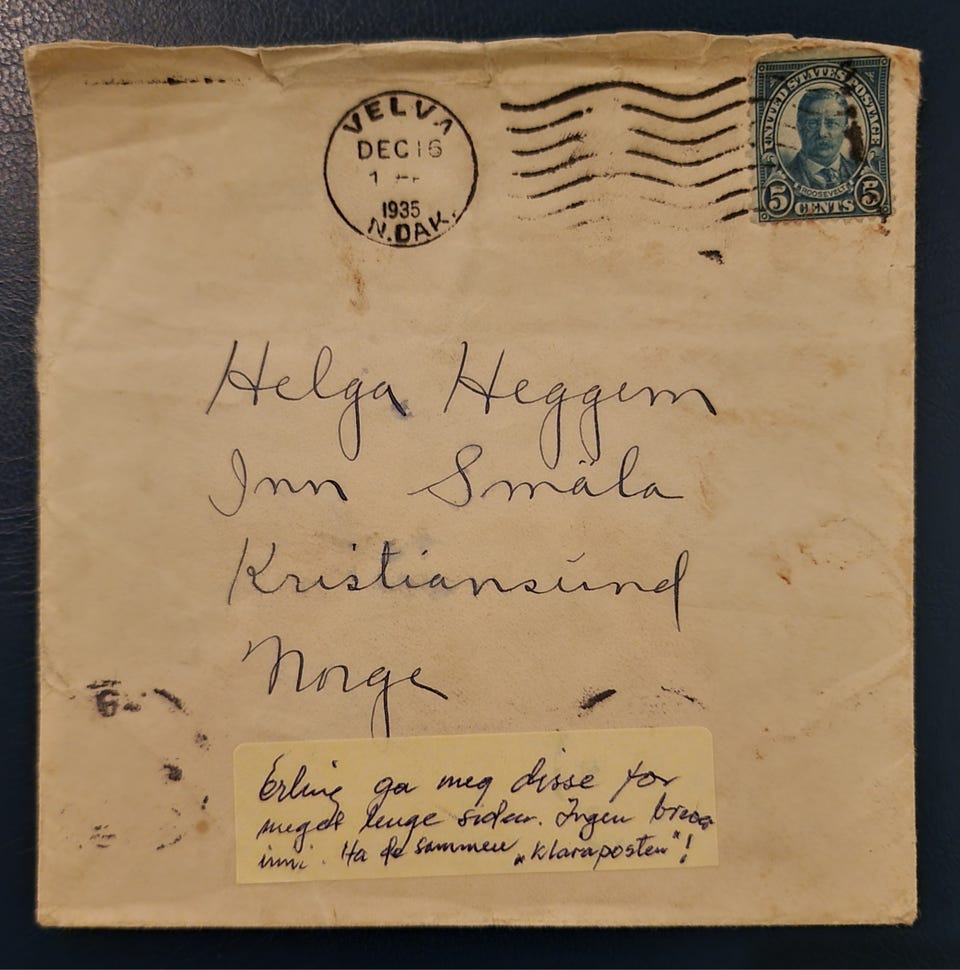 VELVA
DEC 16
1
1935
N.DAK.
UNITED STATES POSTAGE
ROOSEVELT
5 CENTS 5
Helga Heggem
Inn Smäla
Kristiansund
Norge
Erling ga meg disse for
meget lenge siden. Ingen breva
inni. Ha de sammen „Klaraposten"!